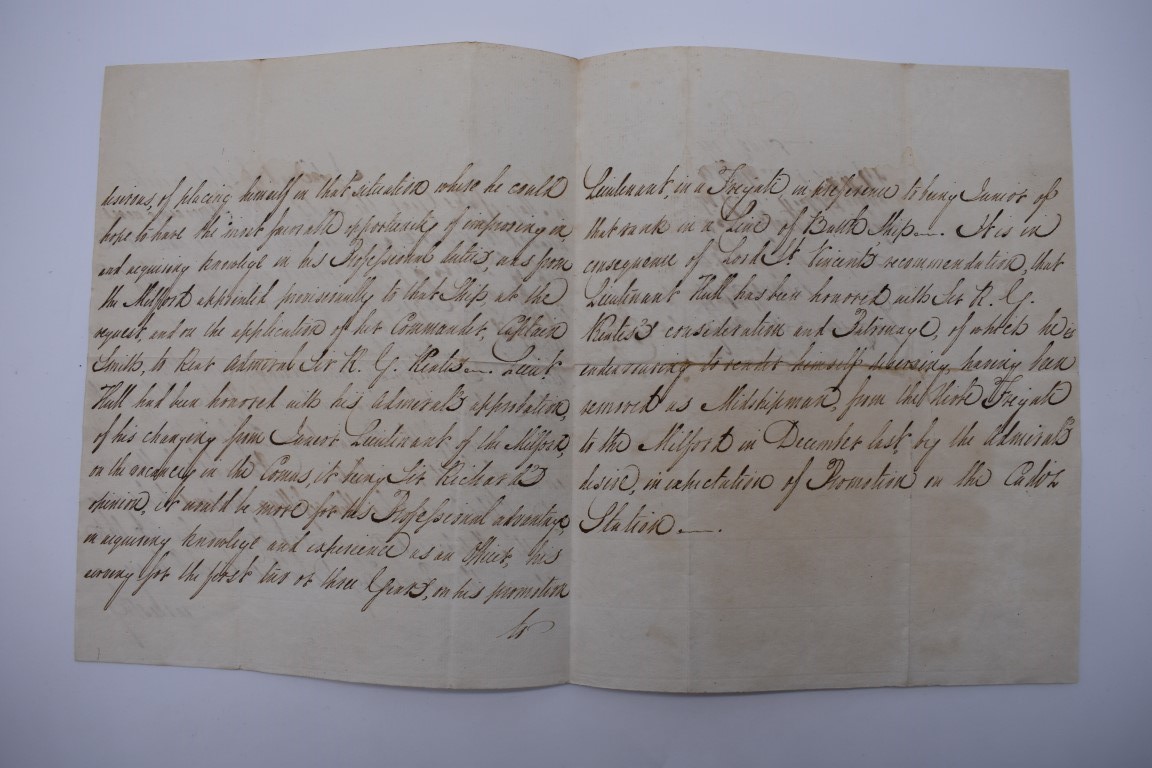 desirous, of placing himself in that situation where he could
hope to have the most favorable opportunity of improving in,
and acquiring knowlege in his Professional duties, was from
the Milford appointed provisionally to that Ship, at the
request, and on the application of her Commander, Captain
Smith, to Rear Admiral Sir R. G. Keats. Lieut.
Hull had been honored with his Admirals approbation,
of his changing from Junior Lieutenant of the Milford,
on the vacancy in the Comus, it being Sir Richard's
opinion, it would be more for his Professional advantage,
in acquiring knowlege and experience as an Officer, his
serving for the first two or three Years, on his promotion
to
Lieutenant, in a Frigate in preference to being Junior of
that rank in a Line of Battle Ship. It is in
consequence of Lord St. Vincent's recommendation, that
Lieutenant Hull has been honored with Sir R. G.
Keats's consideration and Patronage, of which he is
endeavouring to render himself deserving, having been
removed as Midshipman, from the Frigate
to the Milford in December last, by the Admirals
desire, in expectation of Promotion on the Cadiz
Station.